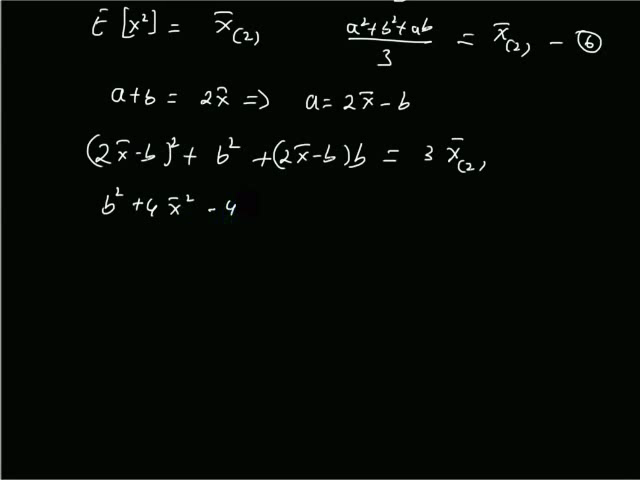 E [x²] = x̄₍₂₎ (a²+b²+ab)/3 = x̄₍₂₎ – ⑥
a+b = 2x̄ => a = 2x̄ – b
(2x̄-b)² + b² + (2x̄-b)b = 3 x̄₍₂₎
b² + 4x̄² - 4